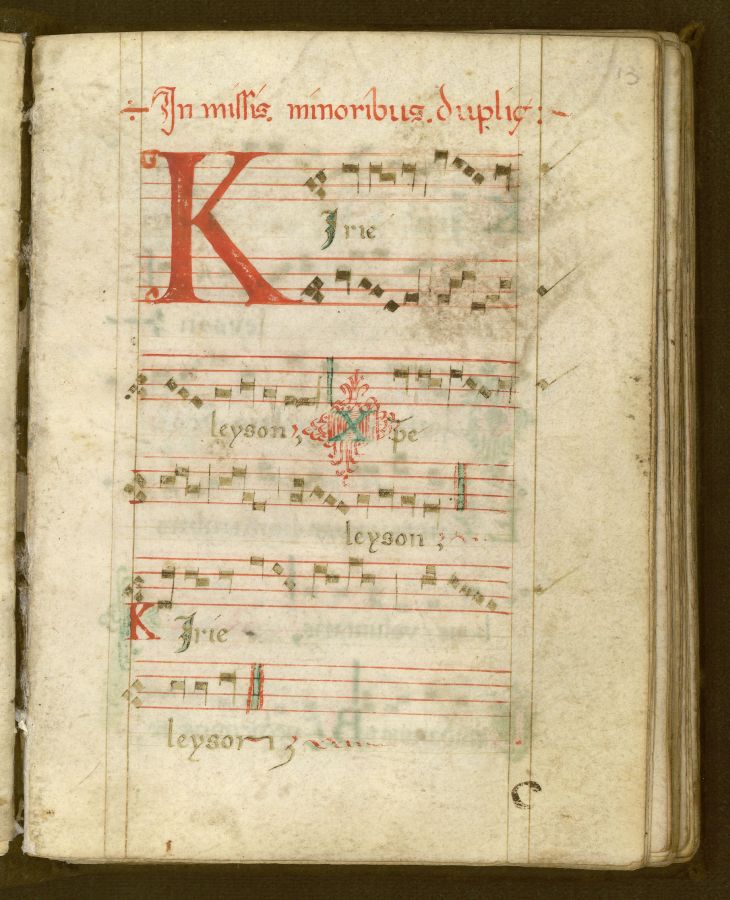 13
In missis. minoribus. dupliç:
K
Jrie
leyson; X p̄e
leyson;
K Jrie
leyson;
C